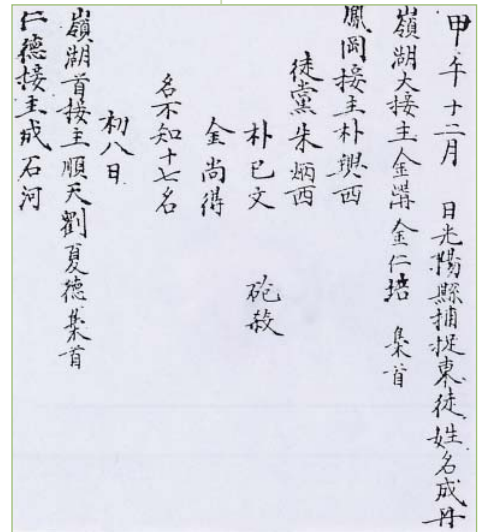 甲午十二月 日光陽縣捕捉東徒姓名成冊
嶺湖大接主金溝金仁培 梟首
鳳岡接主朴興西
徒黨朱炳西
朴已文 砲殺
金尚得
名不知十七名
初八日
嶺湖首接主順天劉夏德梟首
仁德接主成石河